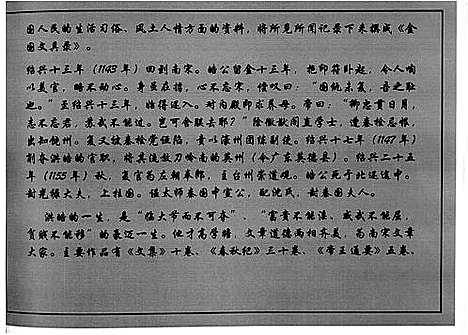 国人民的生活习俗、风土人情方面的资料，将所见所闻记录下来撰成《金
国文具录》。
绍兴十三年（1143年）回到南宋。皓公留金十三年，把印符卧起，金人啗
以美官，略不动心。身虽在辖，心不忘宋，慨叹曰："国统未复，吾之耻
也。"至绍兴十三年，始得还入。对内殿即求养母。帝曰："卿忠贯日月，
志不忘君，苏武不能过。岂可舍朕去耶？"除徽猷阁直学士，遭秦桧忌恨，
出知饶州。复又被秦桧党诬陷，责以濠州团练副使。绍兴十七年（1147年）
削夺洪皓的官职，将其流放到岭南的英州（今广东英德县）。绍兴二十五
年（1155年）秋，复官为左朝奉郎，主台州崇道观。皓公死于北还途中。
封光禄大夫，上柱国。谥太师秦国申宣公，配沈氏，封秦国夫人。
洪皓的一生，是"临大节而不可夺"、"富贵不能淫，威武不能屈，
贫贱不能移"的豪迈一生。他才高学赡，文章道德两相齐美，为南宋文章
大家。主要作品有《文集》十卷、《春秋纪》三十卷、《帝王通要》五卷、